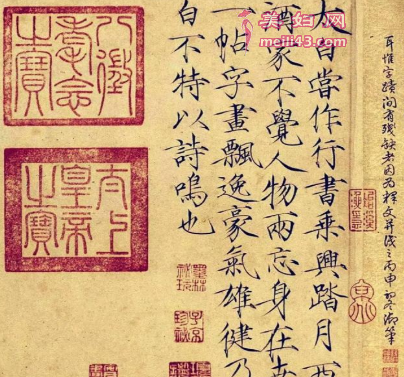 美妇网
meili43.com
耳惟字蹟間有殘缺者因為釋文并識之丙申御筆
太白嘗作行書乘興踏月西
酒家不覺人物兩忘身在世
一帖字畫飄逸豪氣雄健乃
白不特以詩鳴也
八徵耄念之寶
太上皇帝之寶
墨林秘玩